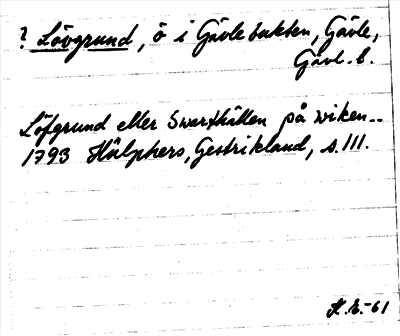 ? Lövgrund, ö i Gävlebukten, Gävle,
Gävl. b.
Löfgrund eller Swarthällen på wiken..
1793 Hülphers, Gestrikland, s. 111.
H. E. -61